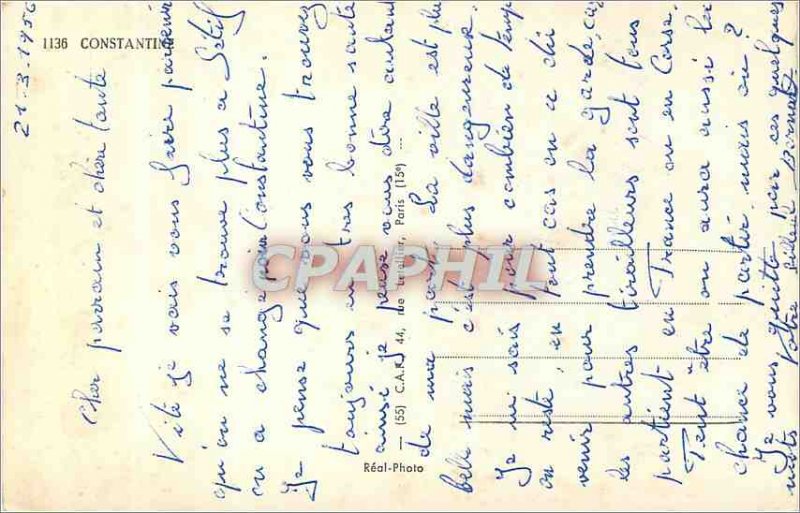 1136 CONSTANTINE
21-3-1956
Cher parrain et chère tante
Vite je vais vous faire parvenir
qu'on ne se trouve plus a Setif
on a changé pour Constantine.
Je pense que vous vous trouvez
toujours en très bonne santé
ainsi je peuse vous dire autant
de ma part. La ville est plus
belle mais c'est plus dangeureux.
Je ni sais pour combien de temps
on reste, en tout cas on a chi
venir pour prendre la garde, car
les autres tirailleurs sont tous
partient en France ou en Corse.
Peut être on aura aussi la
chance de partir mais où ?
Je vous quitte par ces quelques
mots Votre filleul Bernard
Réal-Photo
— (55) C.A.P. 44, rue Letellier, Paris (15e) ...
CPAPHIL